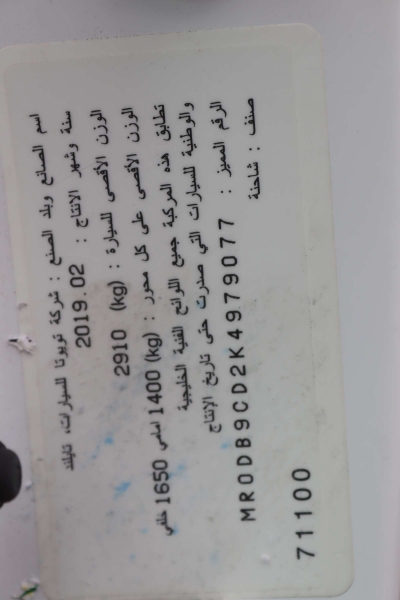 اسم الصانع وبلد الصنع : شركة تويوتا للسيارات، تايلند
سنة وشهر الانتاج : 2019.02
الوزن الأقصى للسيارة : 2910 (kg)
الوزن الأقصى على كل محور : 1400 (kg) امامي 1650 خلفي
تطابق هذه المركبة جميع اللوائح الفنية الخليجية
والوطنية للسيارات التي صدرت حتى تاريخ الإنتاج
الرقم المميز : MR0DB9CD2K4979077
صنف : شاحنة
71100